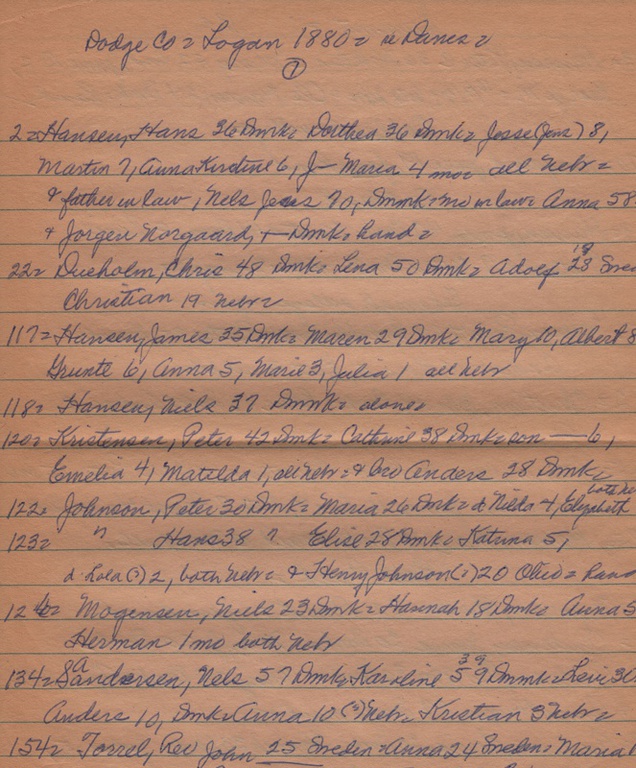 Dodge Co = Logan 1880 = Danes =
1
2 = Hansen, Hans 36 Dmk = Dorthea 36 Dmk = Jesse (Jens) 8,
Martin 7, Anna Kirstine 6, J— Maria 4 mo = all Nebr =
& father in law, Nels Jens 70, Dmmk = mo in law = Anna 58 =
& Jorgen Norgaard, — Dmk = hand =
22 = Dueholm, Chris 48 Dmk = Lena 50 Dmk = Adolf 28 19 Swed
Christian 19 Nebr =
117 = Hansen, James 35 Dmk = Maren 29 Dmk = Mary 10, Albert 8
Grunte 6, Anna 5, Marie 3, Julia 1 all Nebr
118 = Hansen, Niels 37 Dmmk = alone =
120 = Kristensen, Peter 42 Dmk = Cathrine 38 Dmk = son — 6,
Emelia 4, Matilda 1, all Nebr = & bro Anders 28 Dmk =
122 = Johnson, Peter 30 Dmk = Maria 26 Dmk = d Nilda 4, Elizabeth both Ne
123 = " Hans 38 ? Elise 28 Dmk = Katrina 5,
d Lola (?) 2, both Nebr = & Henry Johnson (?) 20 Ohio = hand
126 = Mogensen, Niels 23 Dmk = Hannah 18 Dmk = Anna 5
Herman 1 mo both Nebr
134 = Sandersen, A Nels 57 Dmk = Karoline 59 39 Dmmk = Levi 30
Anders 10, Dmk = Anna 10 (?) Nebr = Kristian 3 Nebr =
154 = Torrel, Rev John 25 Sweden = Anna 24 Sweden = Maria